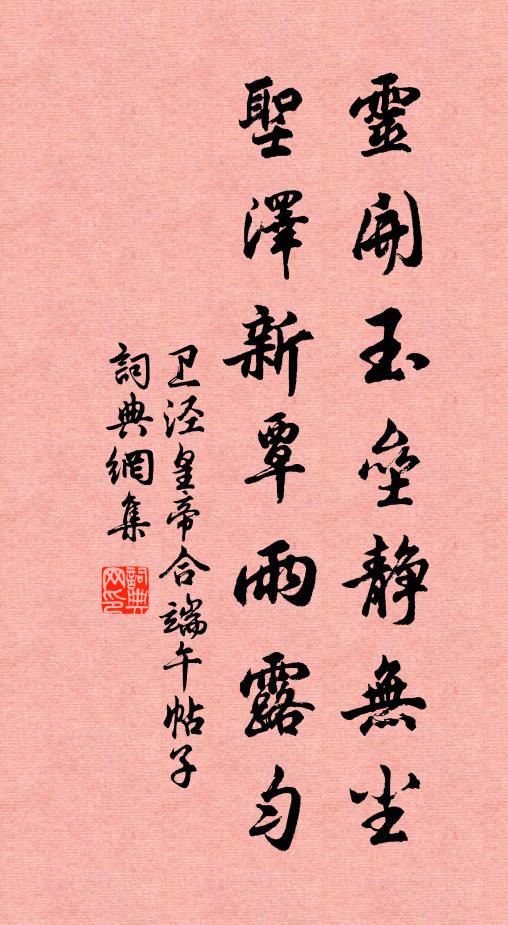 靈開玉垒静無尘
聖澤新覃雨露匀
卫泾皇帝合端午帖子
詞典網集
詞典网印